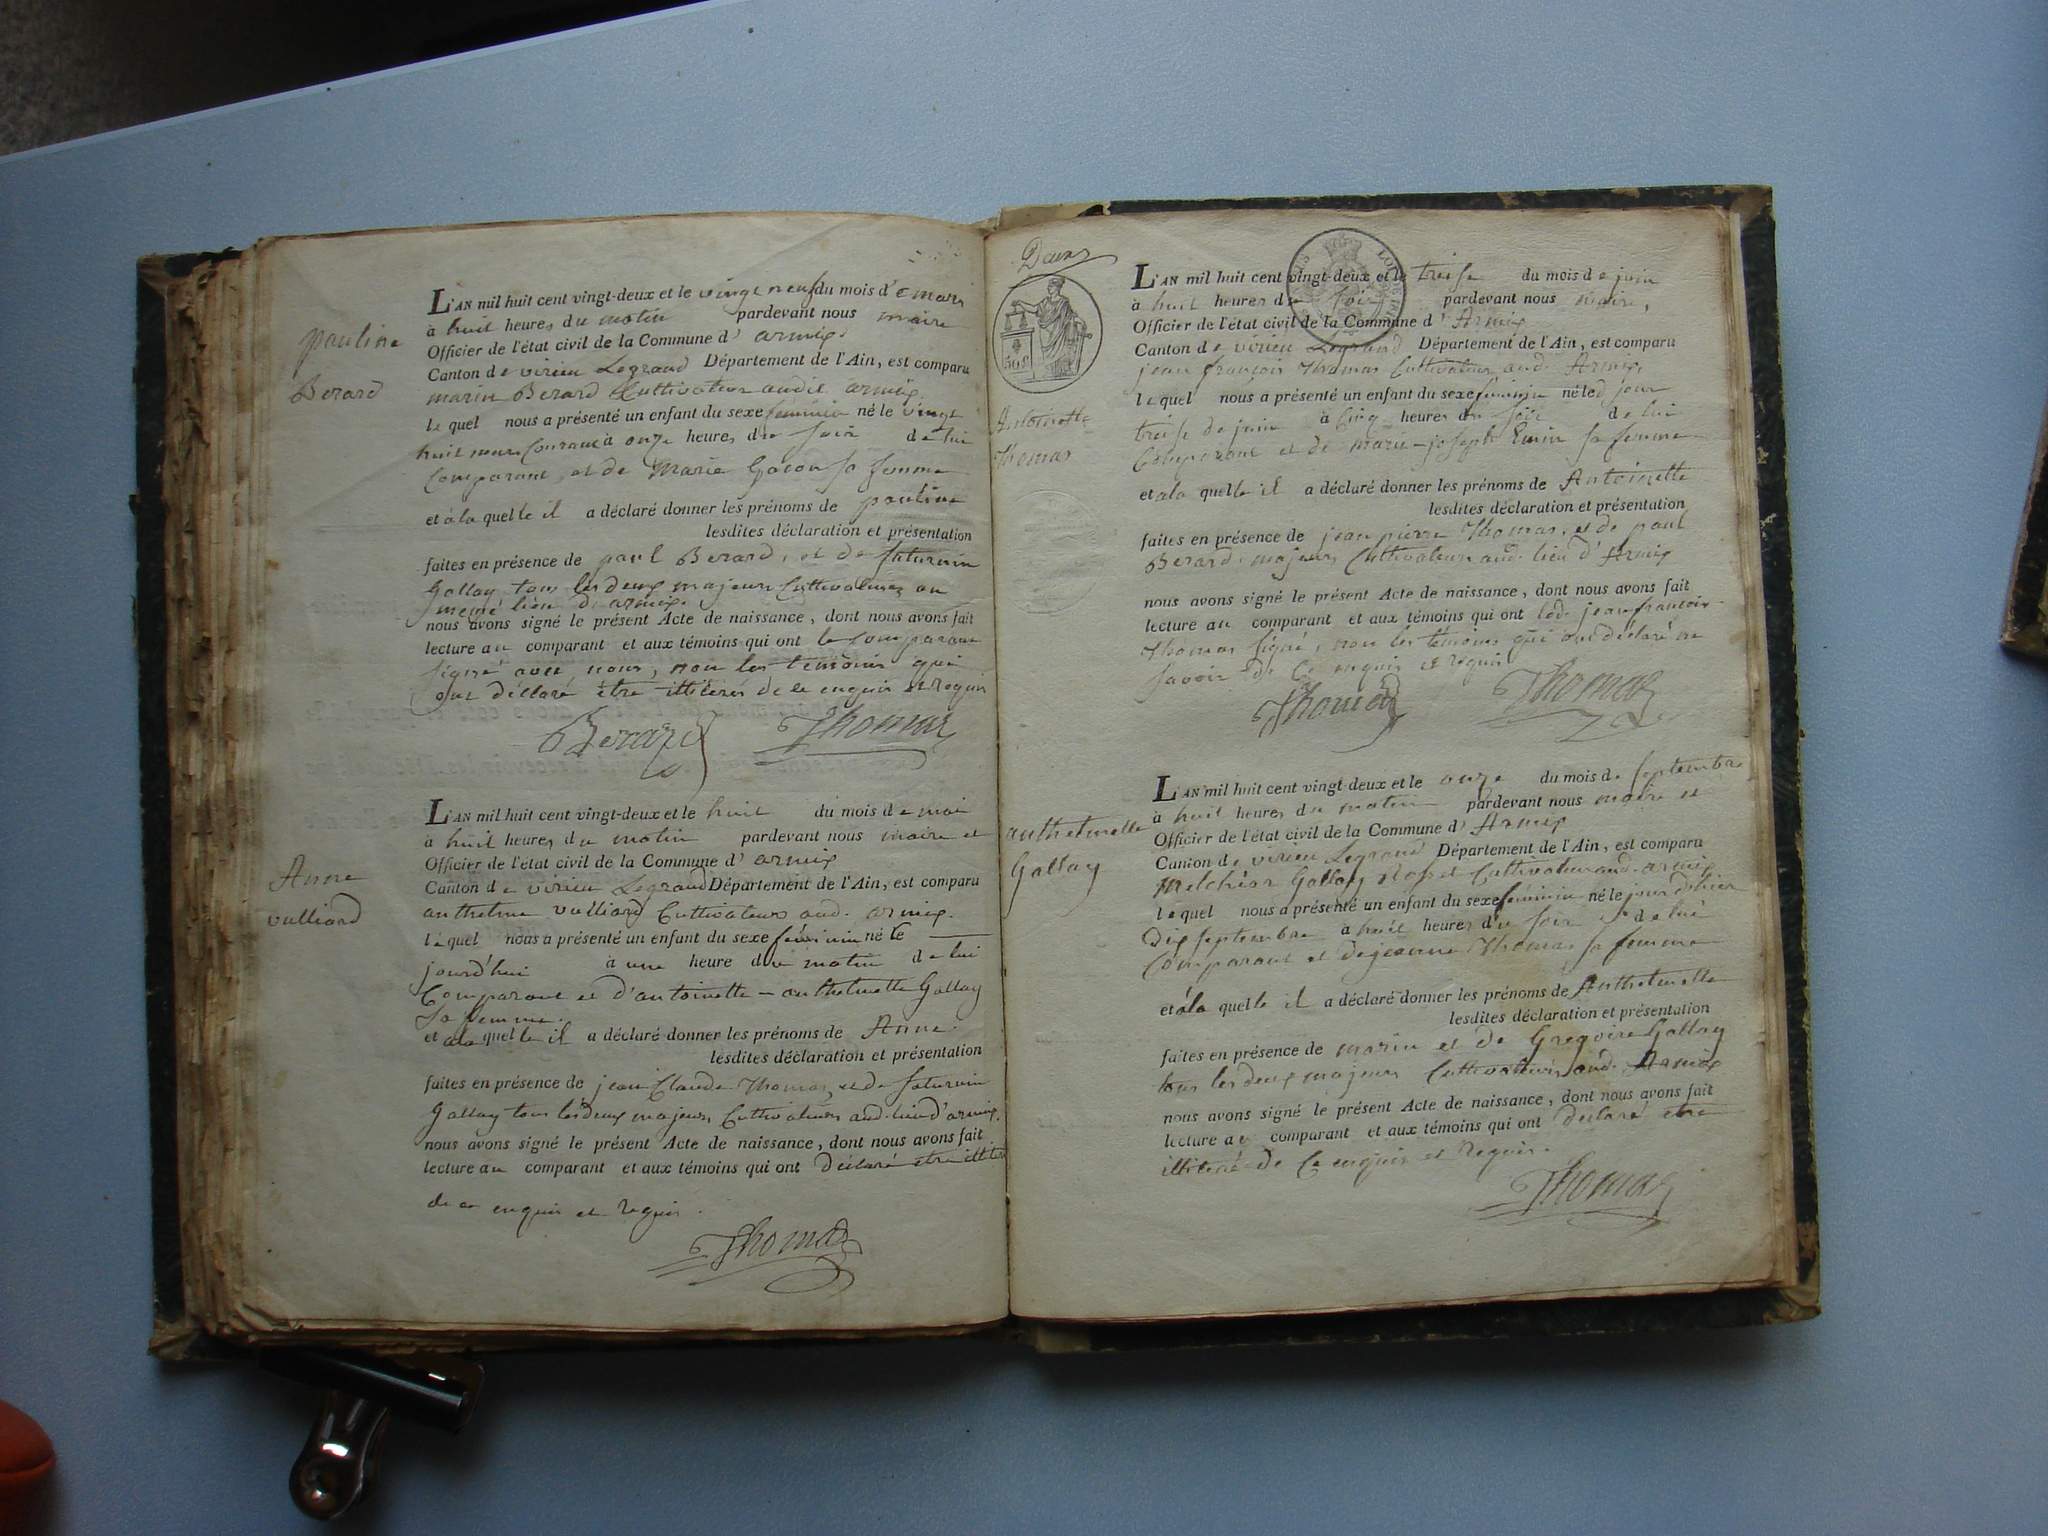 pauline
Berard
L'AN mil huit cent vingt-deux et le vingt neuf du mois d'e mars
à huit heures du matin pardevant nous maire
Officier de l'état civil de la Commune d' armix.
Canton de virieu Legrand Département de l'Ain, est comparu
marin Berard Cultivateur audit armix,
lequel nous a présenté un enfant du sexe féminin né le vingt
huit mars Courant à onze heures du soir de lui
Comparant, et de Marie Gacon sa femme
et à la quelle il a déclaré donner les prénoms de pauline
lesdites déclaration et présentation
faites en présence de paul Berard, et de saturnin
Gallay tous les deux majeurs Cultivateurs au
meme lieu d'armix.
nous avons signé le présent Acte de naissance, dont nous avons fait
lecture au comparant et aux témoins qui ont le comparant
signé avec nous, non les temoins qui
ont déclaré être illiteres de ce enquis et requis
Berard Thomas
Anne
vulliard
L'AN mil huit cent vingt-deux et le huit du mois de mai
à huit heures du matin pardevant nous maire et
Officier de l'état civil de la Commune d' armix
Canton de virieu Legrand Département de l'Ain, est comparu
anthelme vulliard Cultivateur aud. armix.
lequel nous a présenté un enfant du sexe féminin né le
jourd'hui à une heure du matin de lui
Comparant et d'antoinette - anthelmette Gallay
sa femme.
et à la quelle il a déclaré donner les prénoms de Anne.
lesdites déclaration et présentation
faites en présence de jean Claude Thomas, et de saturnin
Gallay tous les deux majeurs Cultivateurs aud. lieu d'armix.
nous avons signé le présent Acte de naissance, dont nous avons fait
lecture au comparant et aux témoins qui ont déclaré etre
de ce enquis et requis.
Thomas
Deux
50 c
Antoinette
Thomas
L'AN mil huit cent vingt-deux et le treise du mois de juin
à huit heures du soir pardevant nous maire,
Officier de l'état civil de la Commune d' Armix
Canton de virieu Legrand Département de l'Ain, est comparu
jean françois Thomas Cultivateur aud. Armix,
lequel nous a présenté un enfant du sexe féminin né led jour
treise de juin à Cinq heures du soir de lui
Comparant et de marie-joseph Emin sa femme
et à la quelle il a déclaré donner les prénoms de Antoinette
lesdites déclaration et présentation
faites en présence de jean pierre Thomas, et de paul
Berard. majeurs Cultivateurs aud. lieu d'Armix
nous avons signé le présent Acte de naissance, dont nous avons fait
lecture au comparant et aux témoins qui ont led. jean françois
Thomas signé, non les témoins qui ont déclaré ne
savoir de Ce enquis et requis
Thomas Thomas
anthelmette
Gallay
L'AN mil huit cent vingt-deux et le onze du mois de septembre
à huit heures du matin pardevant nous maire et
Officier de l'état civil de la Commune d' Armix
Canton de virieu Legrand Département de l'Ain, est comparu
Melchior Gallay Cultivateur aud. armix
lequel nous a présenté un enfant du sexe féminin né le jour d'hier
Dix septembre à huit heures du soir de lui
Comparant et de jeanne Thomas sa femme
et à la quelle il a déclaré donner les prénoms de Anthelmette
lesdites déclaration et présentation
faites en présence de marin et de Gregoire Gallay
tous les deux majeurs Cultivateurs aud. Armix
nous avons signé le présent Acte de naissance, dont nous avons fait
lecture au comparant et aux témoins qui ont déclaré etre
illiteré de Ce enquis et Requis.
Thomas